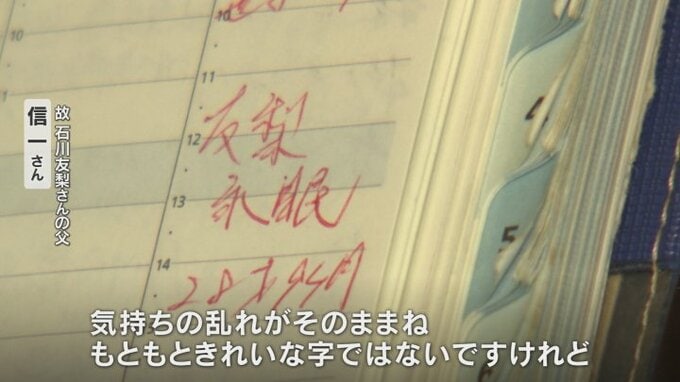 10
11
12
13
14
友梨
永眠
28才
4
5
故 石川友梨さんの父
信一さん
気持ちの乱れがそのままね
もともときれいな字ではないですけれど